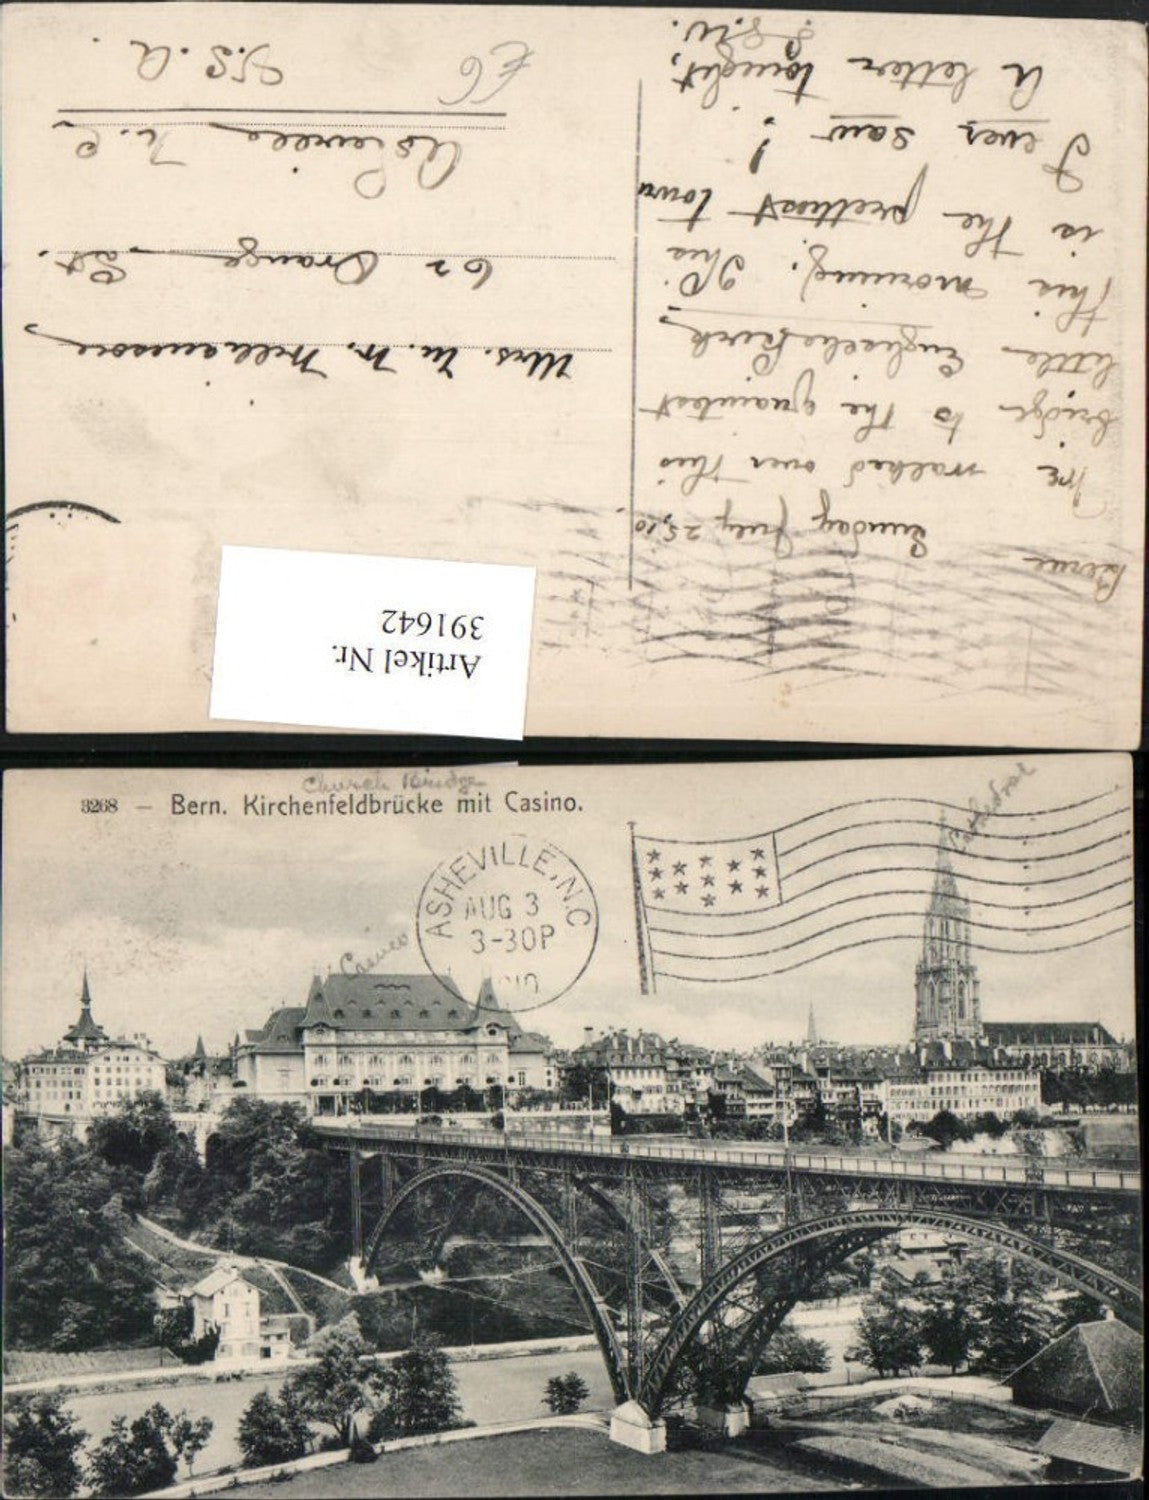 Berne
Sunday July 25, 10.
We walked over this
bridge to the quaintest
little Englische Kirk
this morning. This
is the prettiest town
I ever saw!
A letter tonight.
Artikel Nr.
391642
Mrs. W. W. Williamson
62 Orange St.
Asheville N.C.
U.S.A.
£6
Church Bridge
3268 – Bern. Kirchenfeldbrücke mit Casino.
Cathedral
Casino
ASHEVILLE, N.C
AUG 3
3-30P
1910